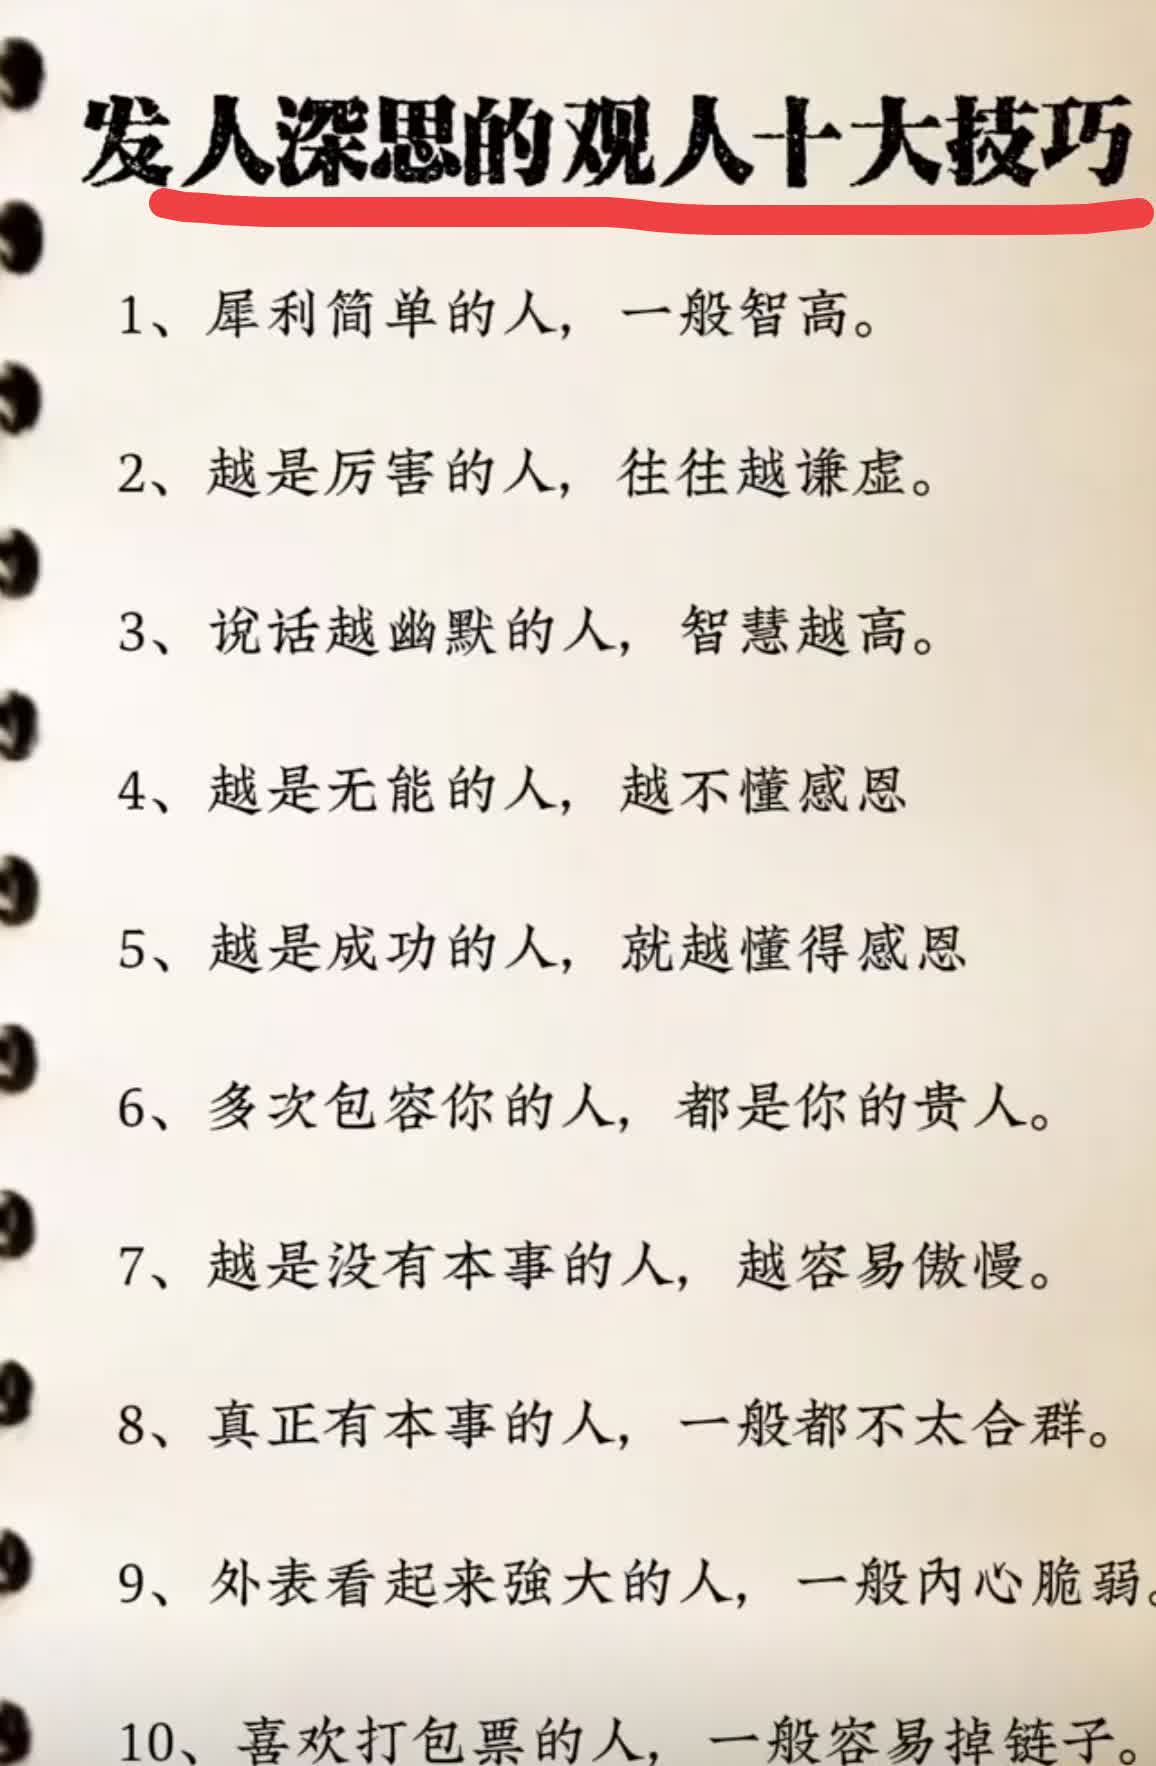 发人深思的观人十大技巧
1、犀利简单的人，一般智高。
2、越是厉害的人，往往越谦虚。
3、说话越幽默的人，智慧越高。
4、越是无能的人，越不懂感恩
5、越是成功的人，就越懂得感恩
6、多次包容你的人，都是你的贵人。
7、越是没有本事的人，越容易傲慢。
8、真正有本事的人，一般都不太合群。
9、外表看起来強大的人，一般内心脆弱。
10、喜欢打包票的人，一般容易掉链子。